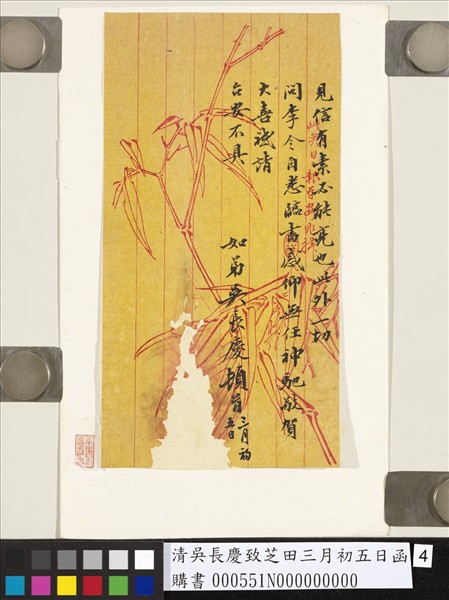 見信有素不能亮也此外一切
問李令自悉臨書感仰無任神馳敬賀
大喜祗請
台安不具
如弟吳長慶頓首三月初
五日
清吳長慶致芝田三月初五日函
4
購書 000551N000000000